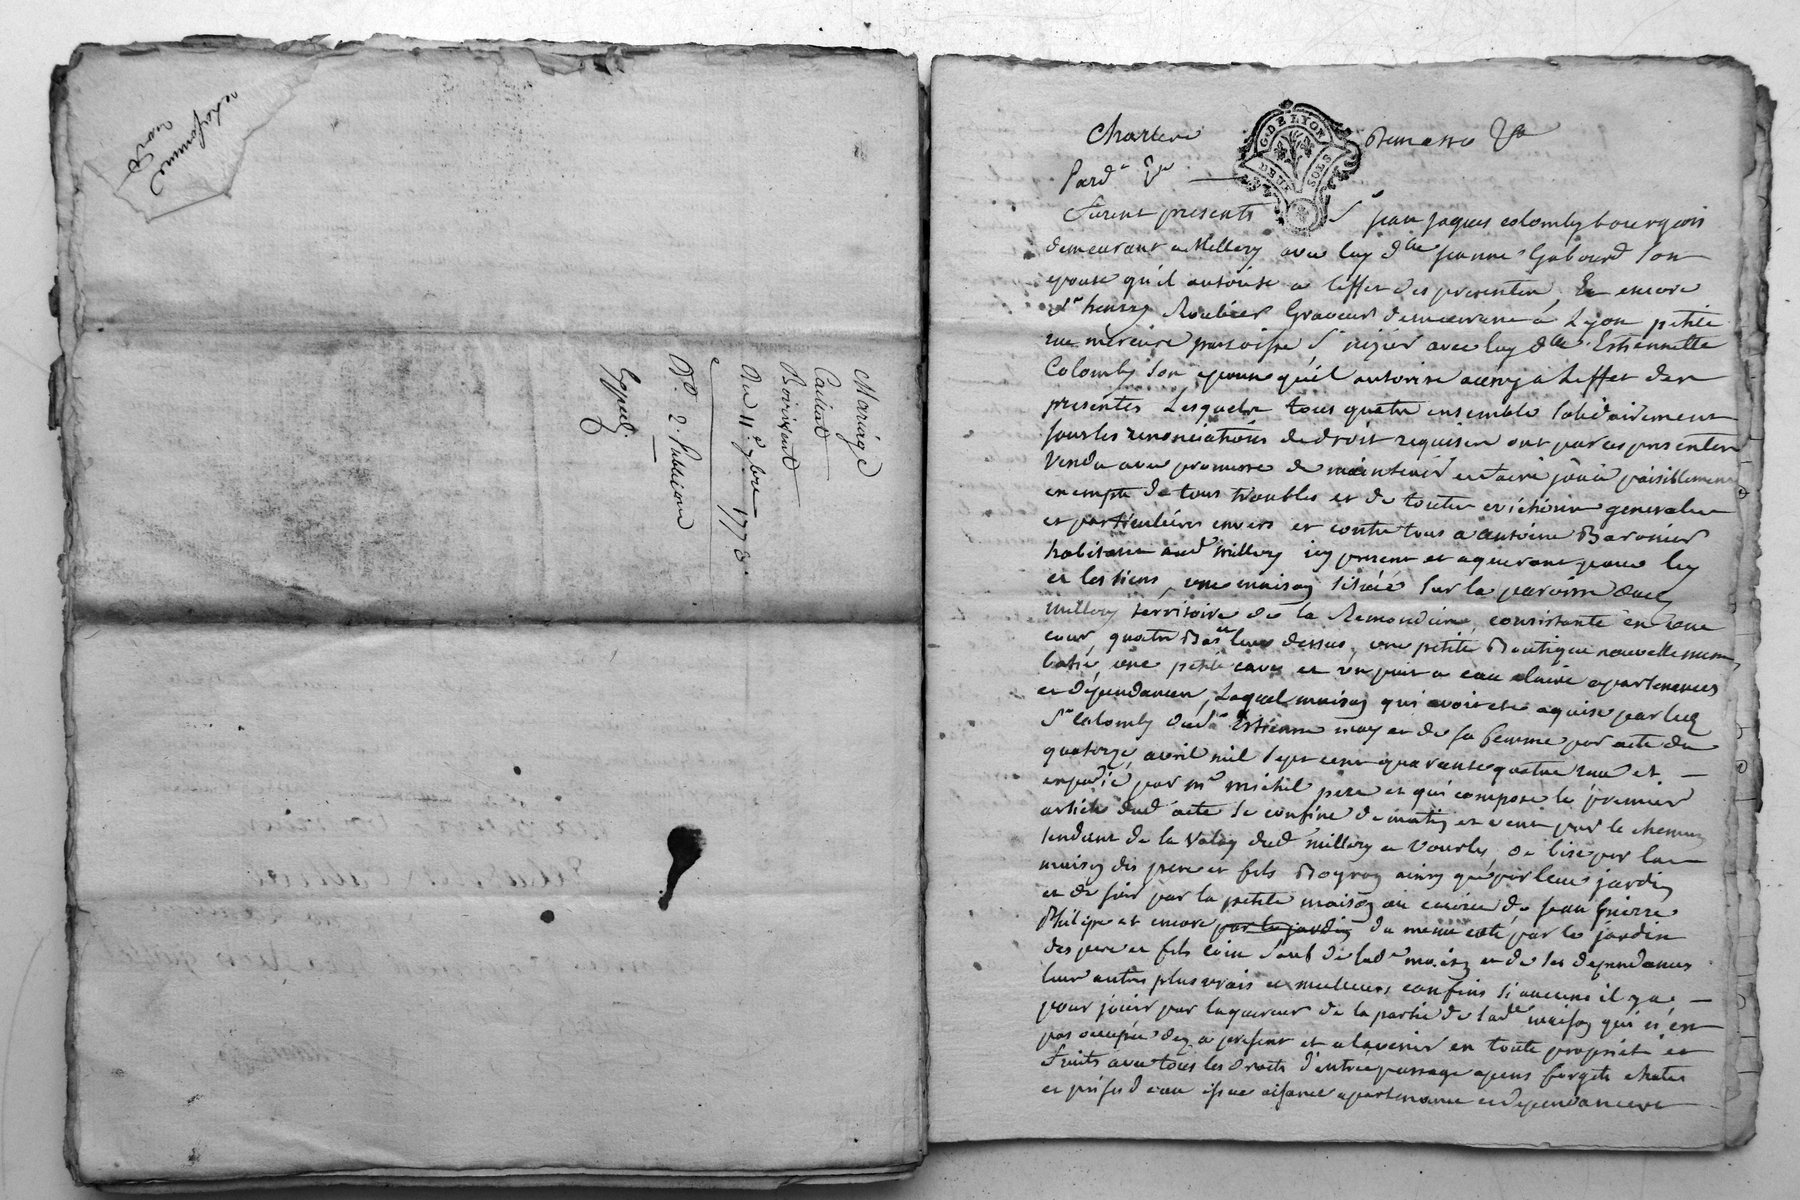 Mariage
Du 11e 9bre 1773.
No. 2. Publicone
Expéd.
G. DE LYON
DEUX SOLS
Pard
Furent presents Sr jean jaques colomby bourgeois
demeurant a Millery avec luy dlle jeanne Gabourd son
epouse qu'il autorise a l'effet des presentes, Et encore
Sr henry Roubier Graveur demeurant a Lyon petite
rue merciere paroisse St nizier avec luy dlle Estiennette
Colomby son epouse qu'il autorise aussy a l'effet des
presentes Lesquels tous quatre ensemble solidairement
sous les renonciations de droit requises ont par ces presentes
Vendu avec promesse de maintenir et faire jouir paisiblement
exempte de tous troubles et de toutes evictions generales
et particulieres envers et contre tous a antoine Baronier
habitant aud millery icy present et aquerant pour luy
et les siens, une maison située sur la paroisse dud
millery territoire de la Remondiere, consistante en une
cour, quatre Bas et leurs dessus, une petite Boutique nouvellement
batie, une petite cave et un puit a eau claire apartenances
et dépendances, Laquelle maison qui avoit eté aquise par led
Sr Colomby dud Estienne et de sa femme par acte du
quatorze avril mil sept cent quarante quatre reçu et
expedié par me michel pere et qui compose le premier
article dud acte se confine de matin et vent par le chemin
tendant de la dud millery a Vourles, de bise par la
maison des pere et fils Boyron ainsy que par leur jardin
et de soir par la petite maison ou ecurie de jean pierre
Philipe et encore par le jardin du meme coté par le jardin
des pere et fils sauf de lade maison et de ses dependances
leur autres plus vrais et meilleurs confins si aucuns il y a
pour jouir par l'aquereur de la partie de lade maison qui n'est
pas occupée des a present et a l'avenir en toute proprieté et
fruits avec tous les droits d'entrée passage
et prise d'eau issue aisance apartenance et dependances